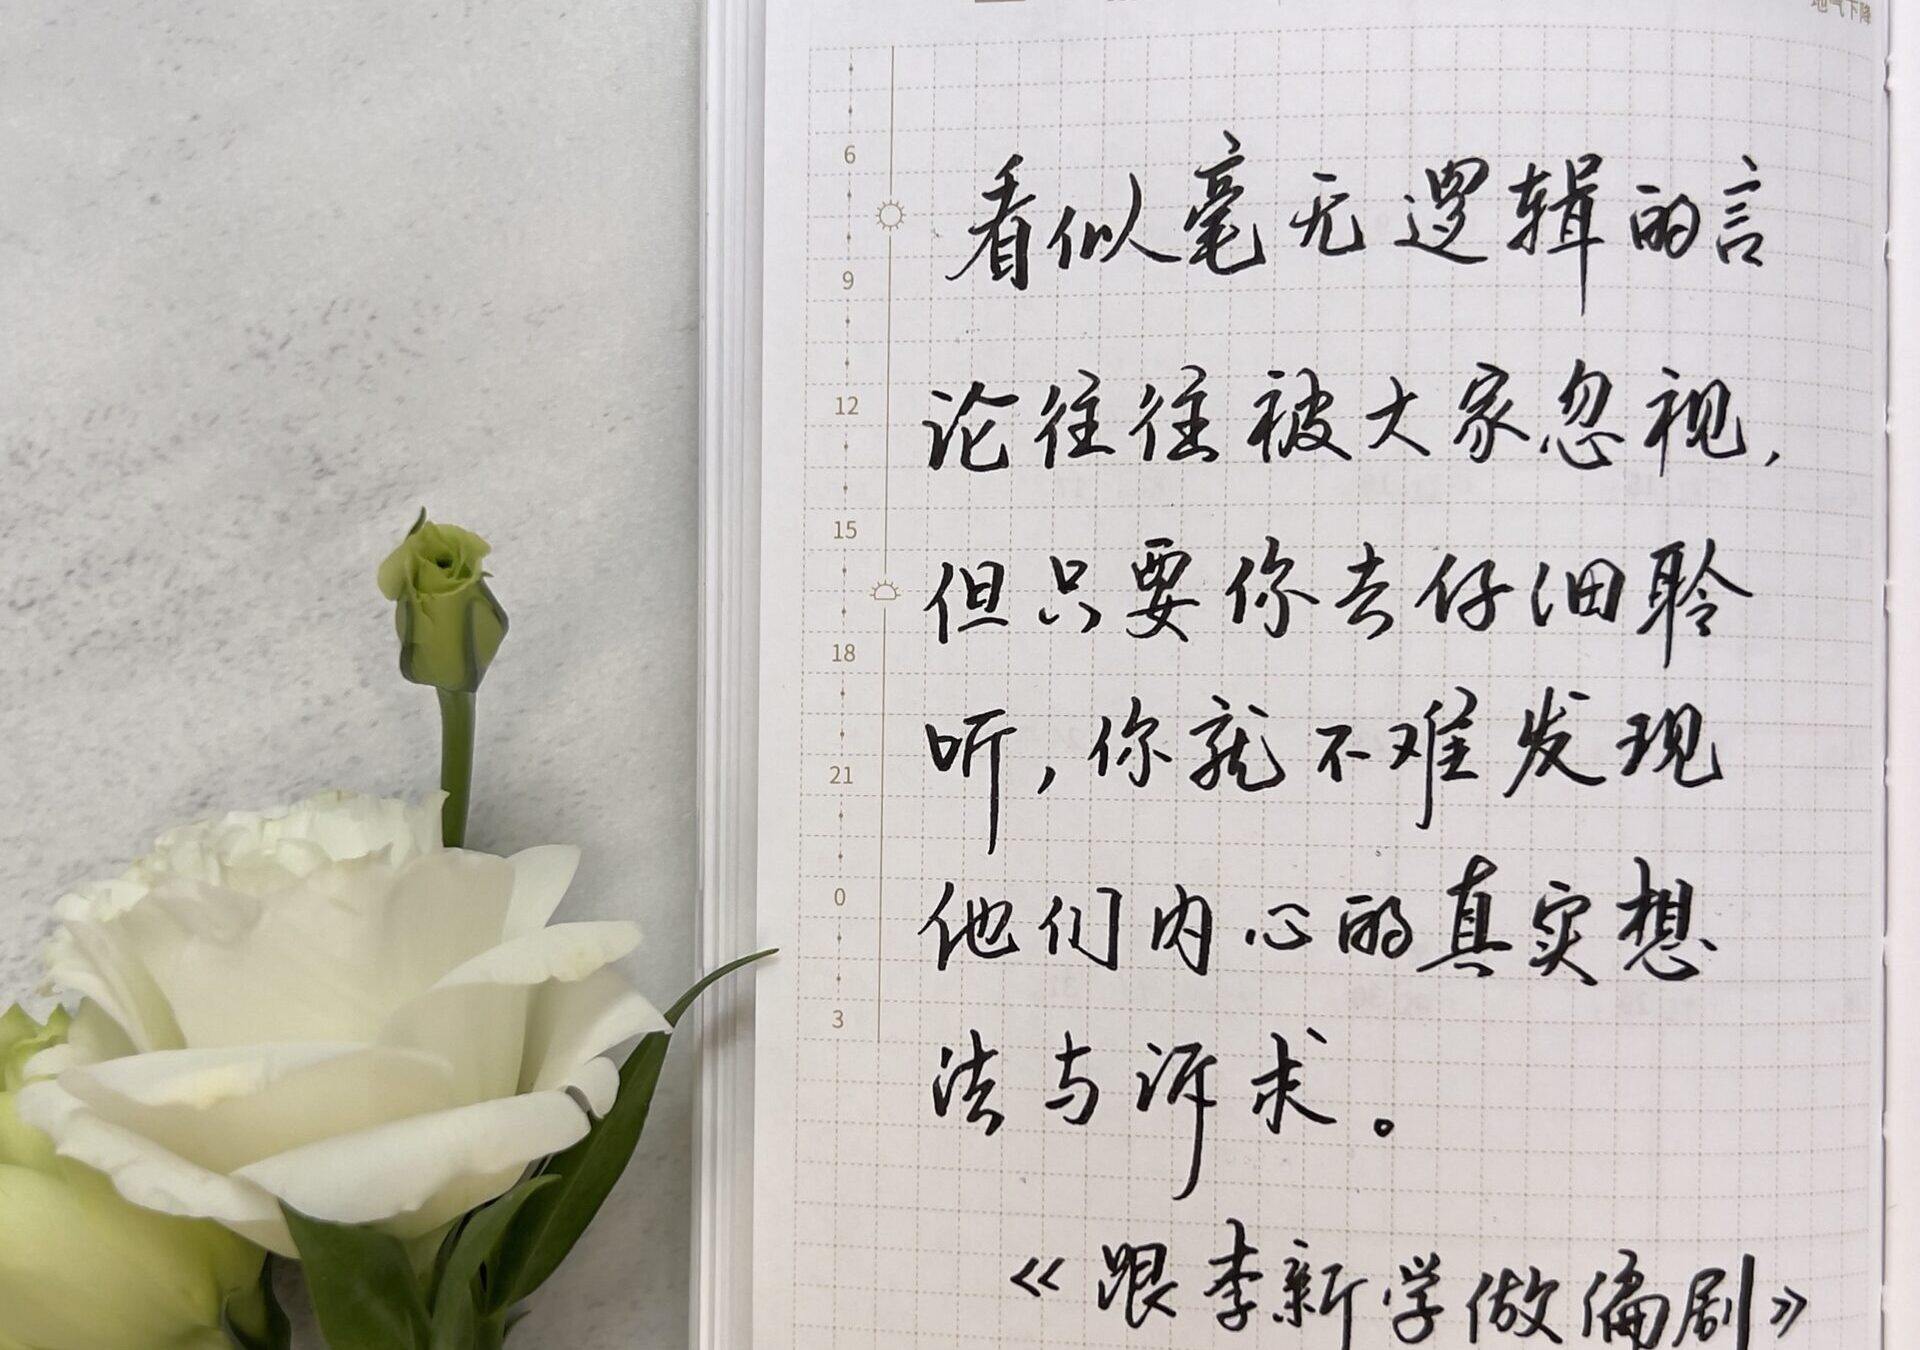 地气下降
6
9
12
15
18
21
0
3
看似毫无逻辑的言
论往往被大家忽视,
但只要你去仔细聆
听,你就不难发现
他们内心的真实想
法与诉求。
《跟李新学做偏剧》